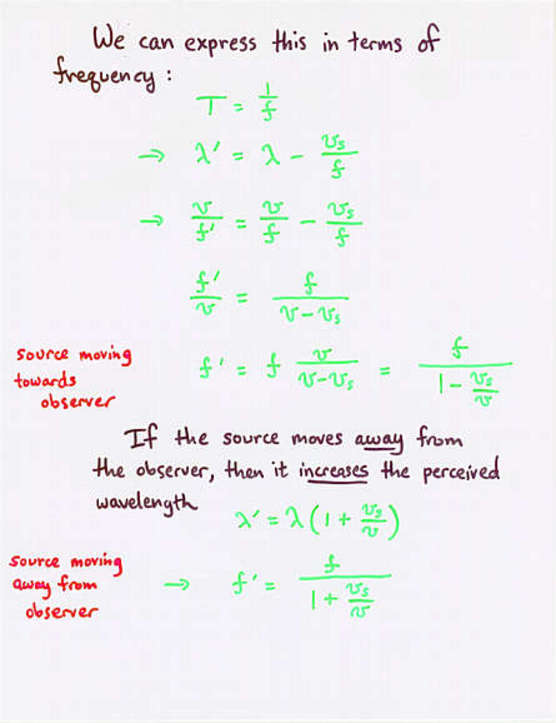 We can express this in terms of
frequency :
T = 1/f
→ λ' = λ - vs/f
→ v/f' = v/f - vs/f
f'/v = f/(v-vs)
source moving
towards
observer
f' = f v/(v-vs) = f/(1 - vs/v)
If the source moves away from
the observer, then it increases the perceived
wavelength
λ' = λ(1 + vs/v)
source moving
away from
observer
→ f' = f/(1 + vs/v)